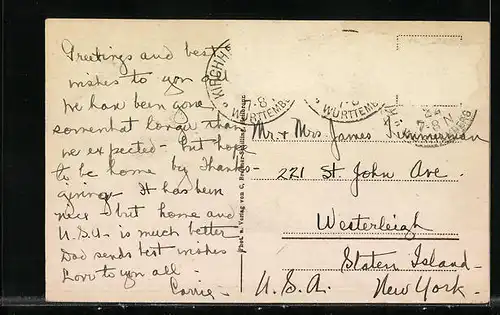 Greetings and best
wishes to you all
We have been gone
somewhat longer than
we expected - but hope
to be home by Thanks-
giving. It has been
nice - but home and
U.S.A. is much better
Dad sends best wishes
Love to you all -
Carrie -
KIRCHH
7-8
WÜRTTEMB
7-8
WÜRTTEMB
7-8 N
BERG
Phot. u. Verlag von C.
Mr. & Mrs. James Timmerman
221 St. John Ave.
Westerleigh
Staten Island -
U.S.A. New York -